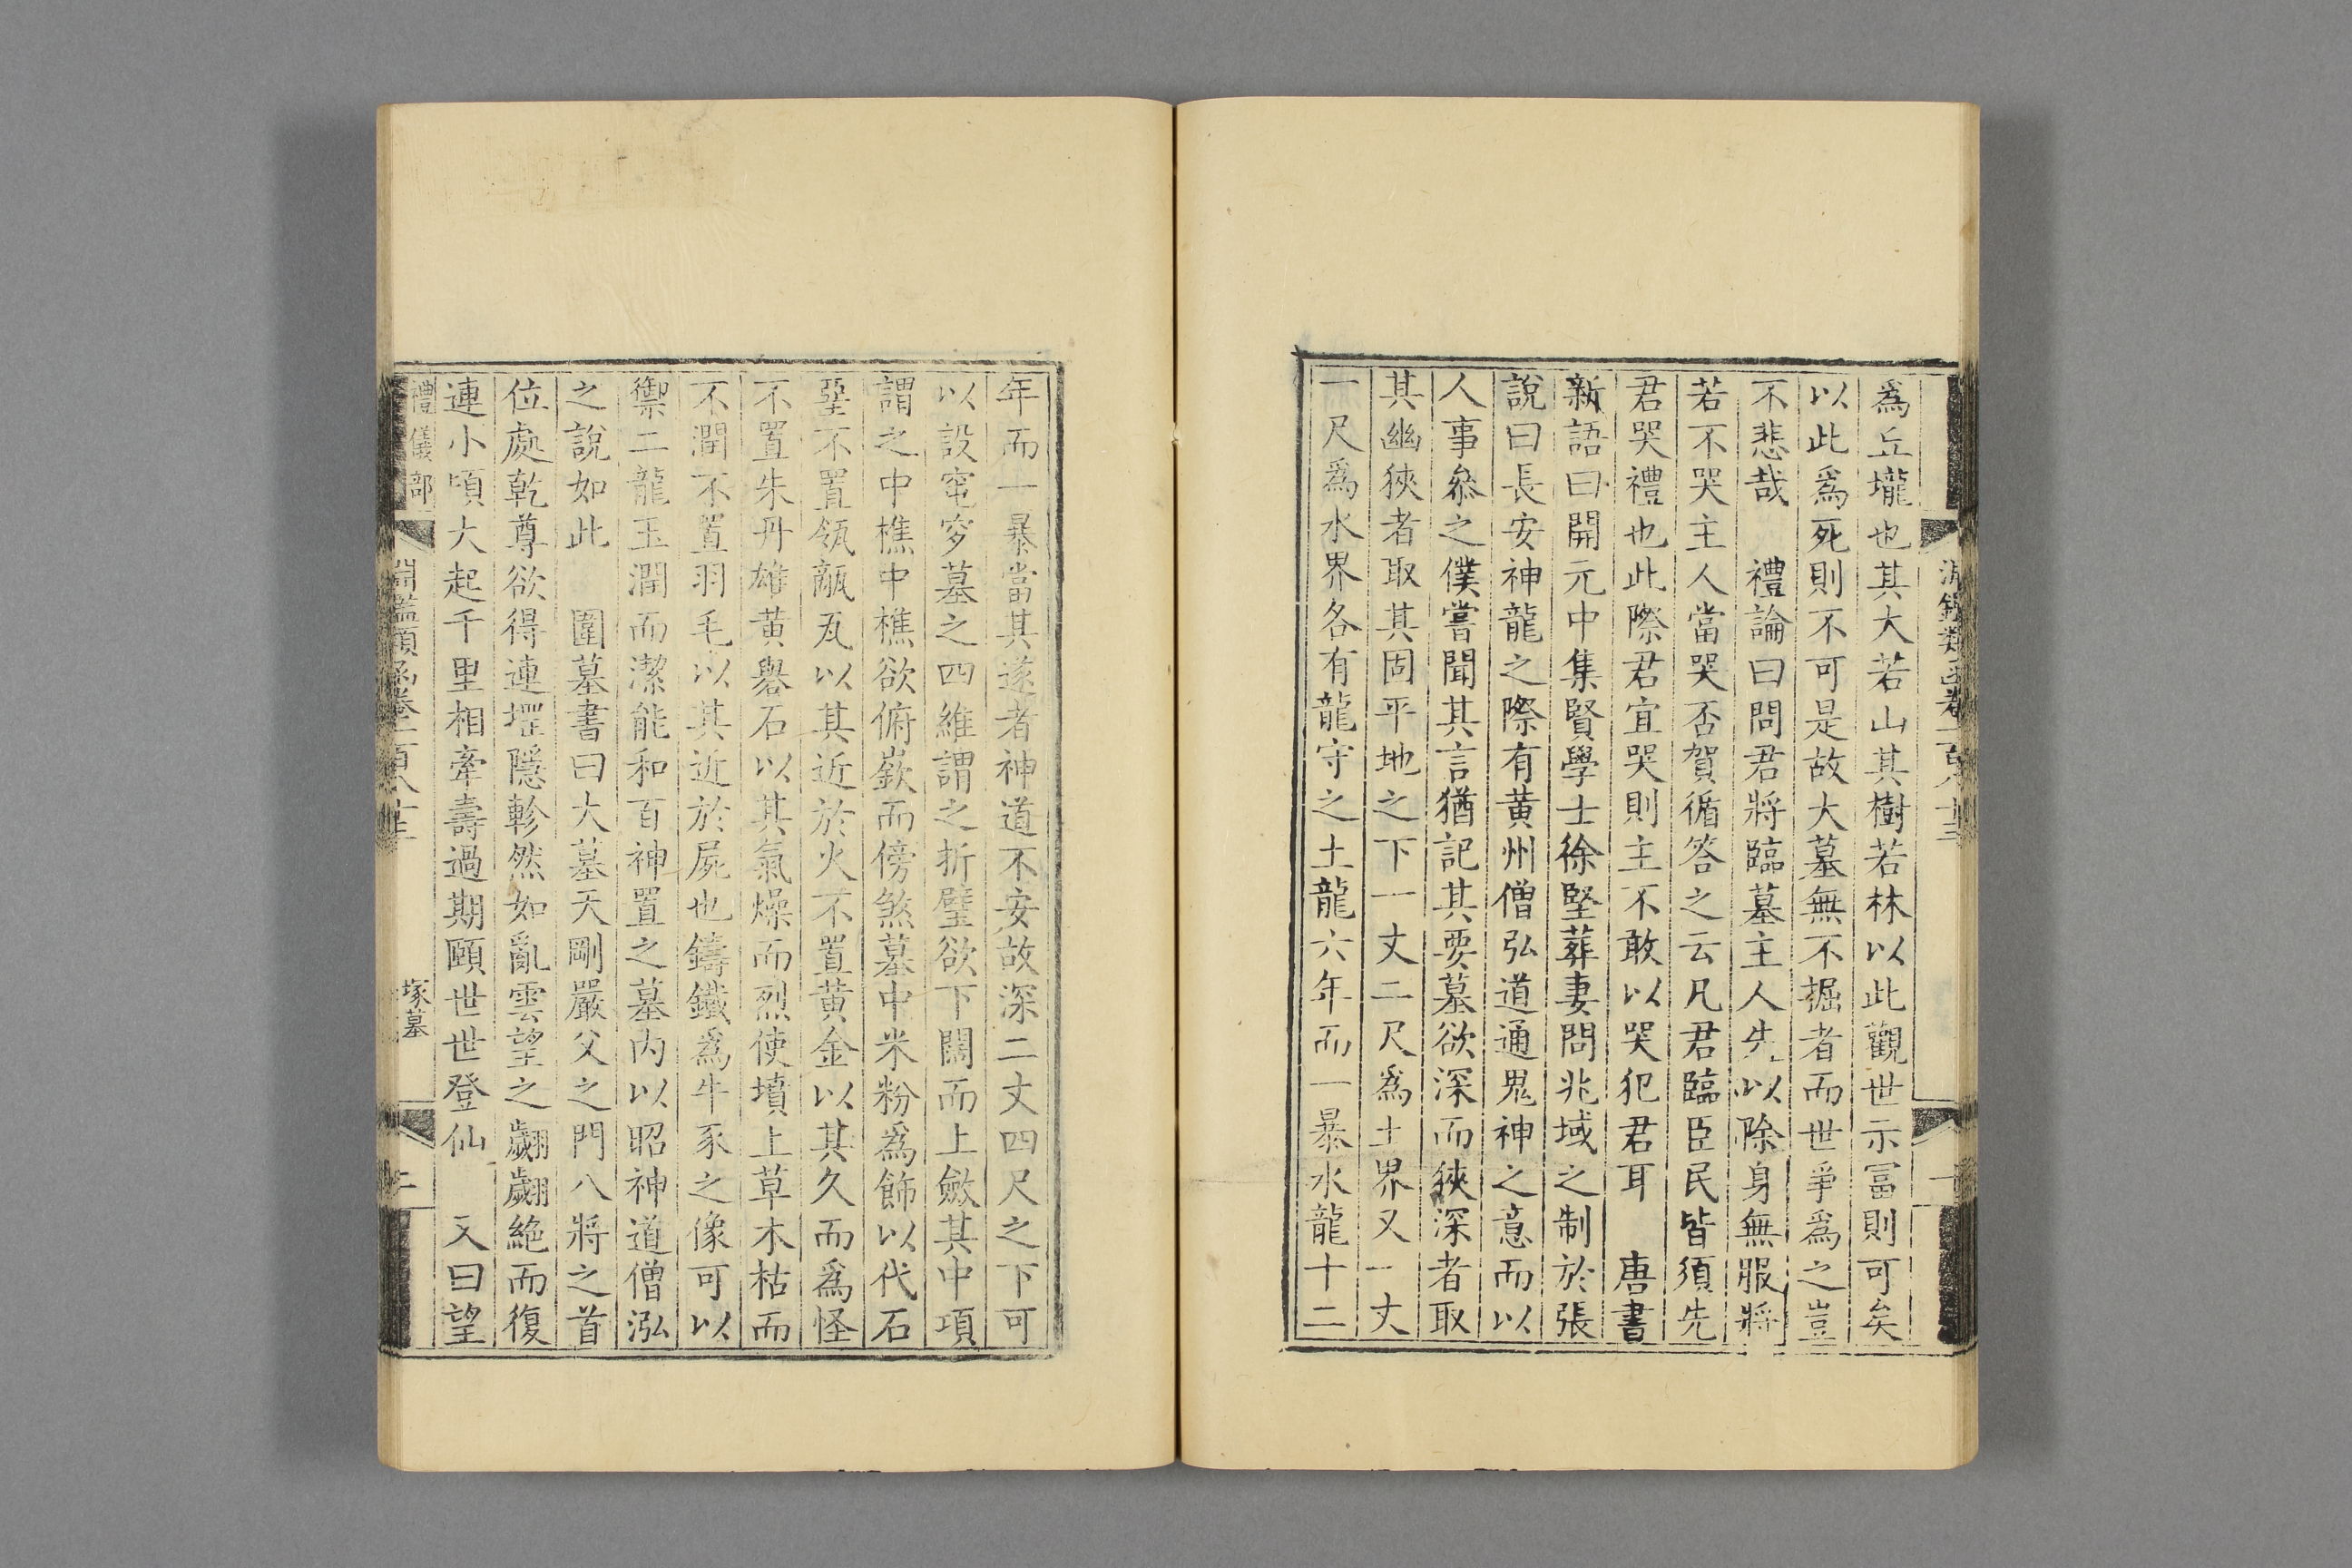 爲丘壠也其大若山其樹若林以此觀世示冨則可矣
以此爲死則不可是故大墓無不掘者而世爭爲之豈
不悲哉　禮論曰問君將臨墓主人先以除身無服將
若不哭主人當哭否賀循答之云凡君臨臣民皆須先
君哭禮也此際君宜哭則主不敢以哭犯君耳　唐書
新語曰開元中集賢學士徐堅葬妻問兆域之制於張
說曰長安神龍之際有黃州僧弘道通鬼神之意而以
人事叅之僕嘗聞其言猶記其要墓欲深而狹深者取
其幽狹者取其固平地之下一丈二尺爲土界又一丈
一尺爲水界各有龍守之土龍六年而一暴水龍十二
年而一暴當其遂者神道不安故深二丈四尺之下可
以設窀穸墓之四維謂之折壁欲下闊而上斂其中項
謂之中樵中樵欲俯嶔而傍煞墓中米粉爲飾以代石
堊不置瓴甋瓦以其近於火不置黃金以其久而爲怪
不置朱丹雄黃礜石以其氣燥而烈使墳上草木枯而
不潤不置羽毛以其近於屍也鑄鐵爲牛豕之像可以
禦二龍玉潤而潔能和百神置之墓內以昭神道僧泓
之說如此　圍墓書曰大墓天剛嚴父之門八將之首
位處乾尊欲得連堽隱軫然如亂雲望之翽翽絶而復
連小頃大起千里相牽壽過期頤世世登仙　又曰望
禮儀部
淵鑑類函卷一百八十三
塚墓
二